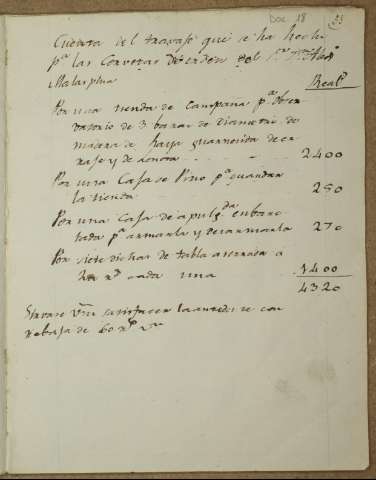 Doc 18
Cuenta del travajo que se ha hecho
pª las Corvetas de orden del Sr. Dn Alexº
Malaspina
Realˢ
Por una tienda de Campaña pª obser-
vatorio de 3 baras de Diametro de
madera de haya guarnecida de
y de lona 2400
Por una Caja de Pino pª guardar
la tienda 250
Por una Caja de apulgda
pª armarla y desarmarla 270
Por siete dichas de tabla aserrada a
cada una 1400
4320
satisfacer la antedicha con
rebaja de 60 rˢ vn